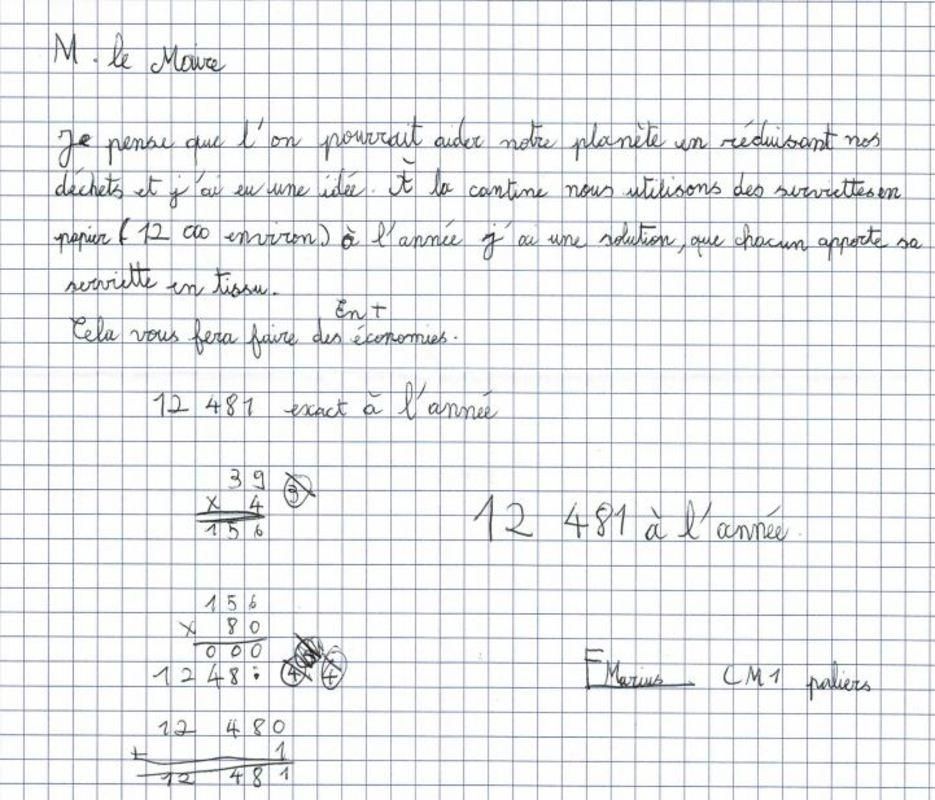 M. le Maire
Je pense que l'on pourrait aider notre planète en réduisant nos
déchets et j'ai eu une idée. À la cantine nous utilisons des serviettes en
papier (12 000 environ) à l'année j'ai une solution, que chacun apporte sa
serviette en tissu.
En +
Cela vous fera faire des économies.
12 481 exact à l'année
39
x 4 3
156
12 481 à l'année.
156
x 80
000
1248. 4 4
12 480
+ 1
12 481
Marius CM1 paliers